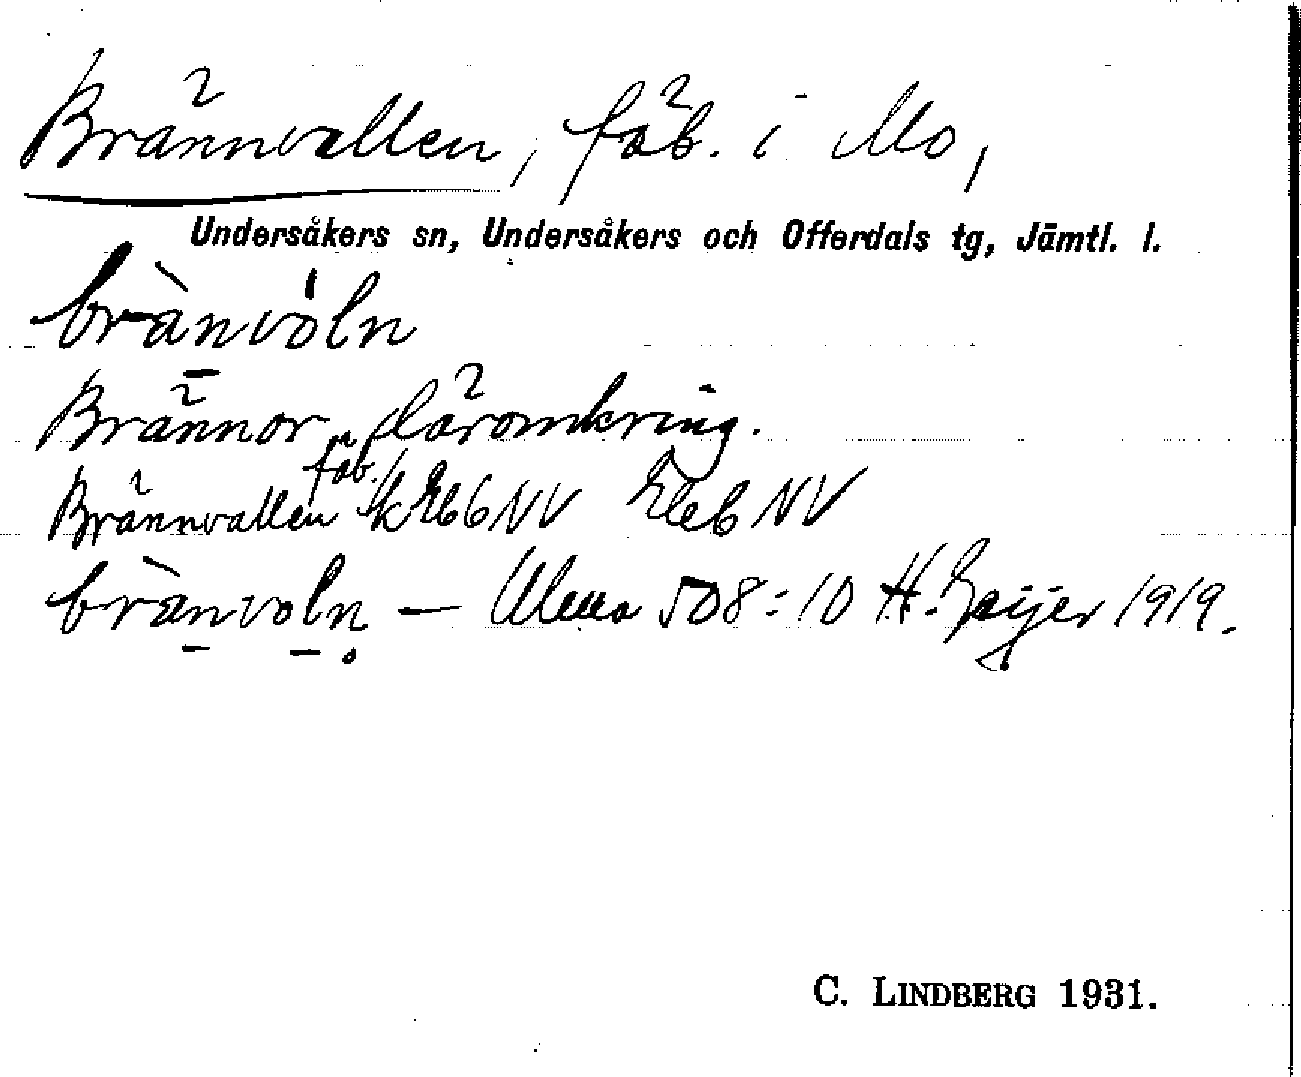 Brännvallen, fäb. i Mo,
Undersåkers sn, Undersåkers och Offerdals tg, Jämtl. l.
brànvóln
Brännor däromkring.
Brännvallen fäb. NV NV
brànvoln — Ulma 508:10 H. Geijer 1919.
C. LINDBERG 1931.